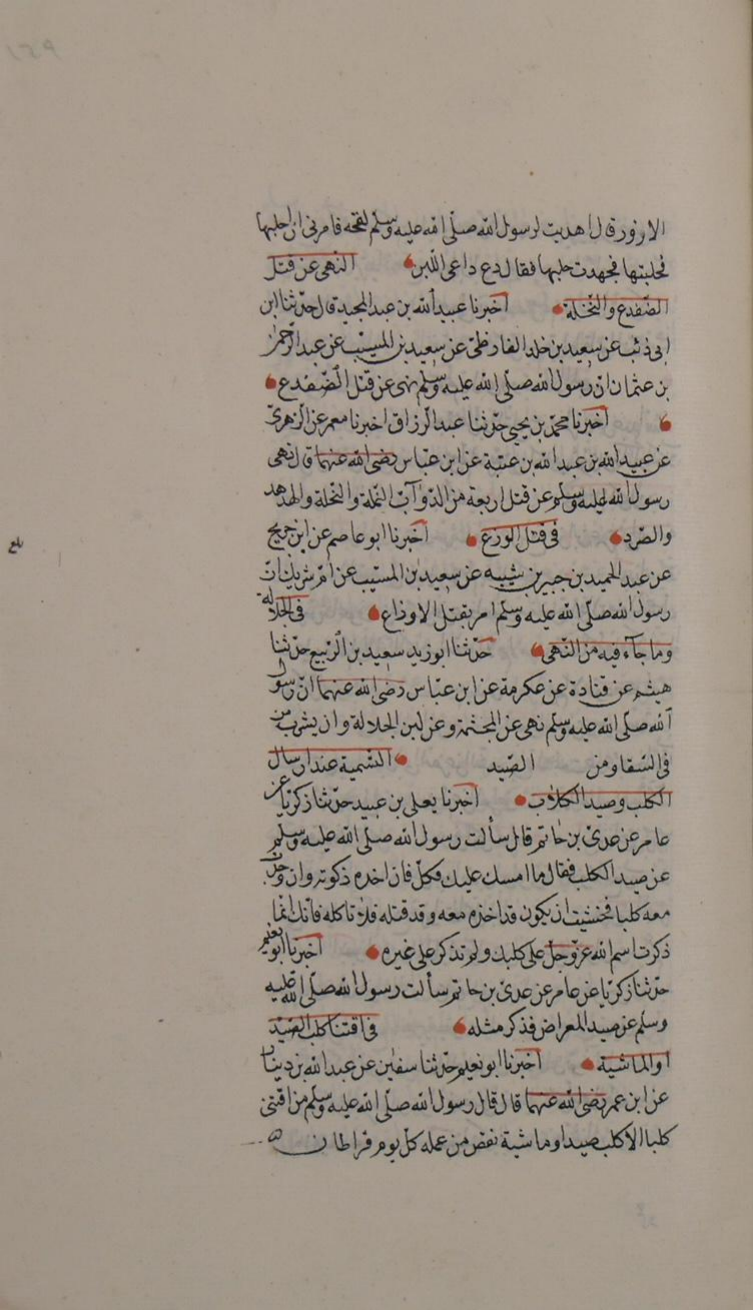 الازور قال اهديت لرسول الله صلى الله عليه وسلم لقحة فامرني ان احلبها
فحلبتها فجهدت حلبها فقال دع داعي اللبن النهي عن قتل
الضفدع والنخلة اخبرنا عبيد الله بن عبد المجيد قال حدثنا ابن
ابي ذئب عن سعيد بن خلد القارظي عن سعيد بن المسيب عن عبد الرحمن
بن عثمان ان رسول الله صلى الله عليه وسلم نهى عن قتل الضفدع
اخبرنا محمد بن يحيى حدثنا عبد الرزاق اخبرنا معمر عن الزهري
عن عبيد الله بن عبد الله بن عتبة عن ابن عباس رضي الله عنهما قال نهى
رسول الله صلى الله عليه وسلم عن قتل اربعة من الدوآب النملة والنحلة والهدهد
والصرد في قتل الوزغ اخبرنا ابو عاصم عن ابن جريج
عن عبد الحميد بن جبير بن شيبه عن سعيد بن المسيب عن ام شريك ان
رسول الله صلى الله عليه وسلم امر بقتل الاوزاغ في الجلالة
وما جآء فيه من النهي حدثنا ابو زيد سعيد بن الربيع حدثنا
هيثم عن قتادة عن عكرمة عن ابن عباس رضي الله عنهما ان رسول
الله صلى الله عليه وسلم نهى عن المجثمة وعن لبن الجلالة وان يشرب من
في السقا ومن الصيد التسمية عند ارسال
الكلب وصيد الكلاب اخبرنا يعلى بن عبيد حدثنا زكريا عن
عامر عن عدي بن حاتم قال سألت رسول الله صلى الله عليه وسلم
عن صيد الكلب فقال ما امسك عليك فكل فان اخذه ذكوته وان وجدت
معه كلبا فخشيت ان يكون قد اخذه معه وقد قتله فلا تاكله فانك انما
ذكرت اسم الله عز وجل على كلبك ولم تذكر على غيره اخبرنا ابو نعيم
حدثنا زكريا عن عامر عن عدي بن حاتم سألت رسول الله صلى الله عليه
وسلم عن صيد المعراض فذكر مثله في اقتنا كلب الصيد
او الماشية اخبرنا ابو نعيم حدثنا سفين عن عبد الله بن دينار
عن ابن عمر رضي الله عنهما قال قال رسول الله صلى الله عليه وسلم من اقتنى
كلبا الا كلب صيد او ماشية نقص من عمله كل يوم قراطان
بلغ